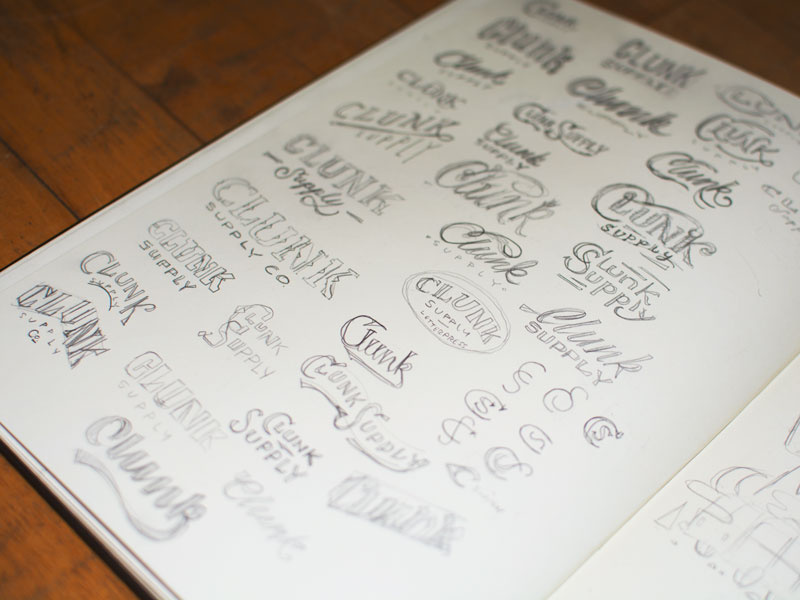 Clunk
SUPPLY
CLUNK
SUPPLY
Clunk
SUPPLY
Clunk
SUPPLY
CLUNK
CLUNK
SUPPLY
CLUNK
SUPPLY
Clunk
Supply
Clunk
SUPPLY
Clunk
CLUNK
Supply
Clunk
CLUNK
Supply
CLUNK
SUPPLY CO
Clunk
SUPPLY
Clunk
Supply
CLUNK
SUPPLY
CLUNK
Supply
CLUNK
SUPPLY
CO
CLUNK
SUPPLY
LETTERPRESS
Clunk
SUPPLY
CLUNK
SUPPLY
Clunk
CLUNK SUPPLY
CLUNK
SUPPLY
CLUNK
SUPPLY
Clunk
Clunk
Clunk